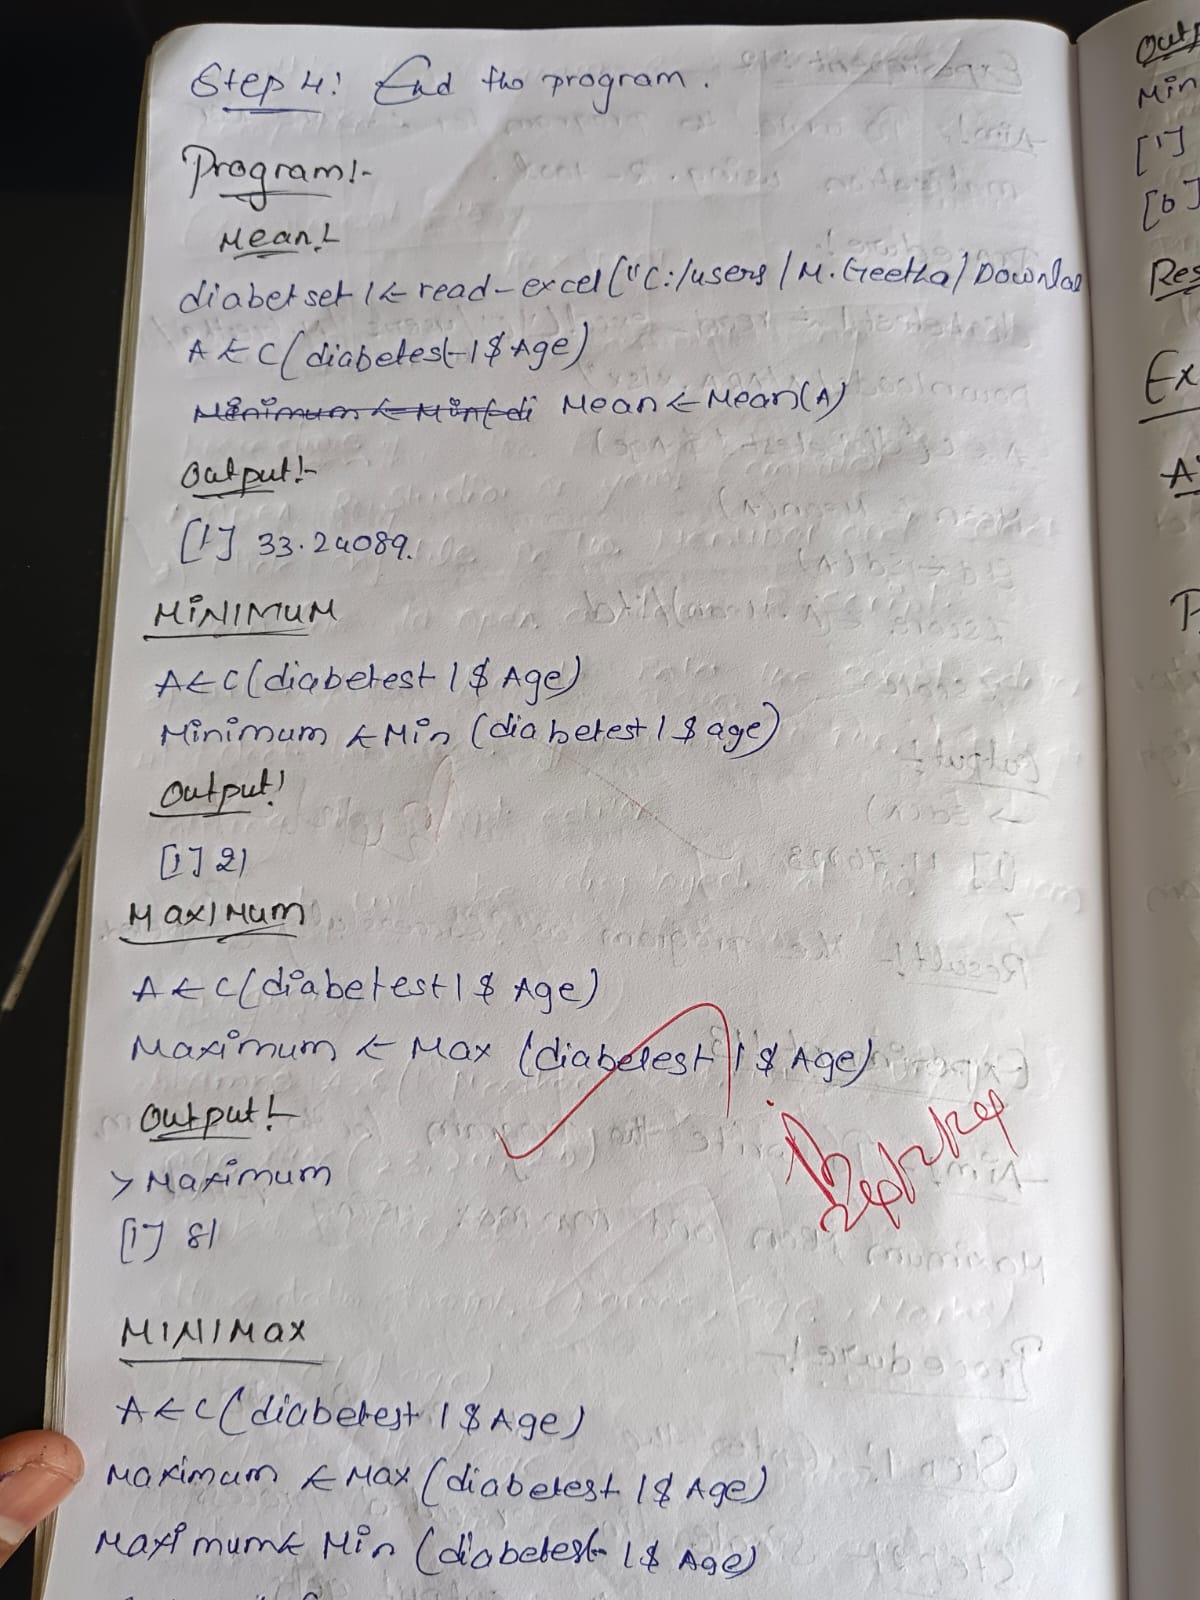 Step 4: End the program.
Program:-
Mean:-
diabetset 1 <- read-excel("C:/users/M.Geetha/Downloa
A <- C(diabetest1$Age)
Minimum <- Min(di Mean <- Mean(A)
Output:-
[1] 33.24089.
MINIMUM
A <- C(diabetest1$Age)
Minimum <- Min (diabetest1$age)
Output:
[1] 21
MAXIMUM
A <- C(diabetest1$Age)
Maximum <- Max (diabetest1$Age)
Output:-
> Maximum
[1] 81
MINIMAX
A <- C(diabetest1$Age)
Maximum <- Max (diabetest1$Age)
Maximum <- Min (diabetest1$Age)
Outp
Min
[1]
[6]
Res
Ex
A
P